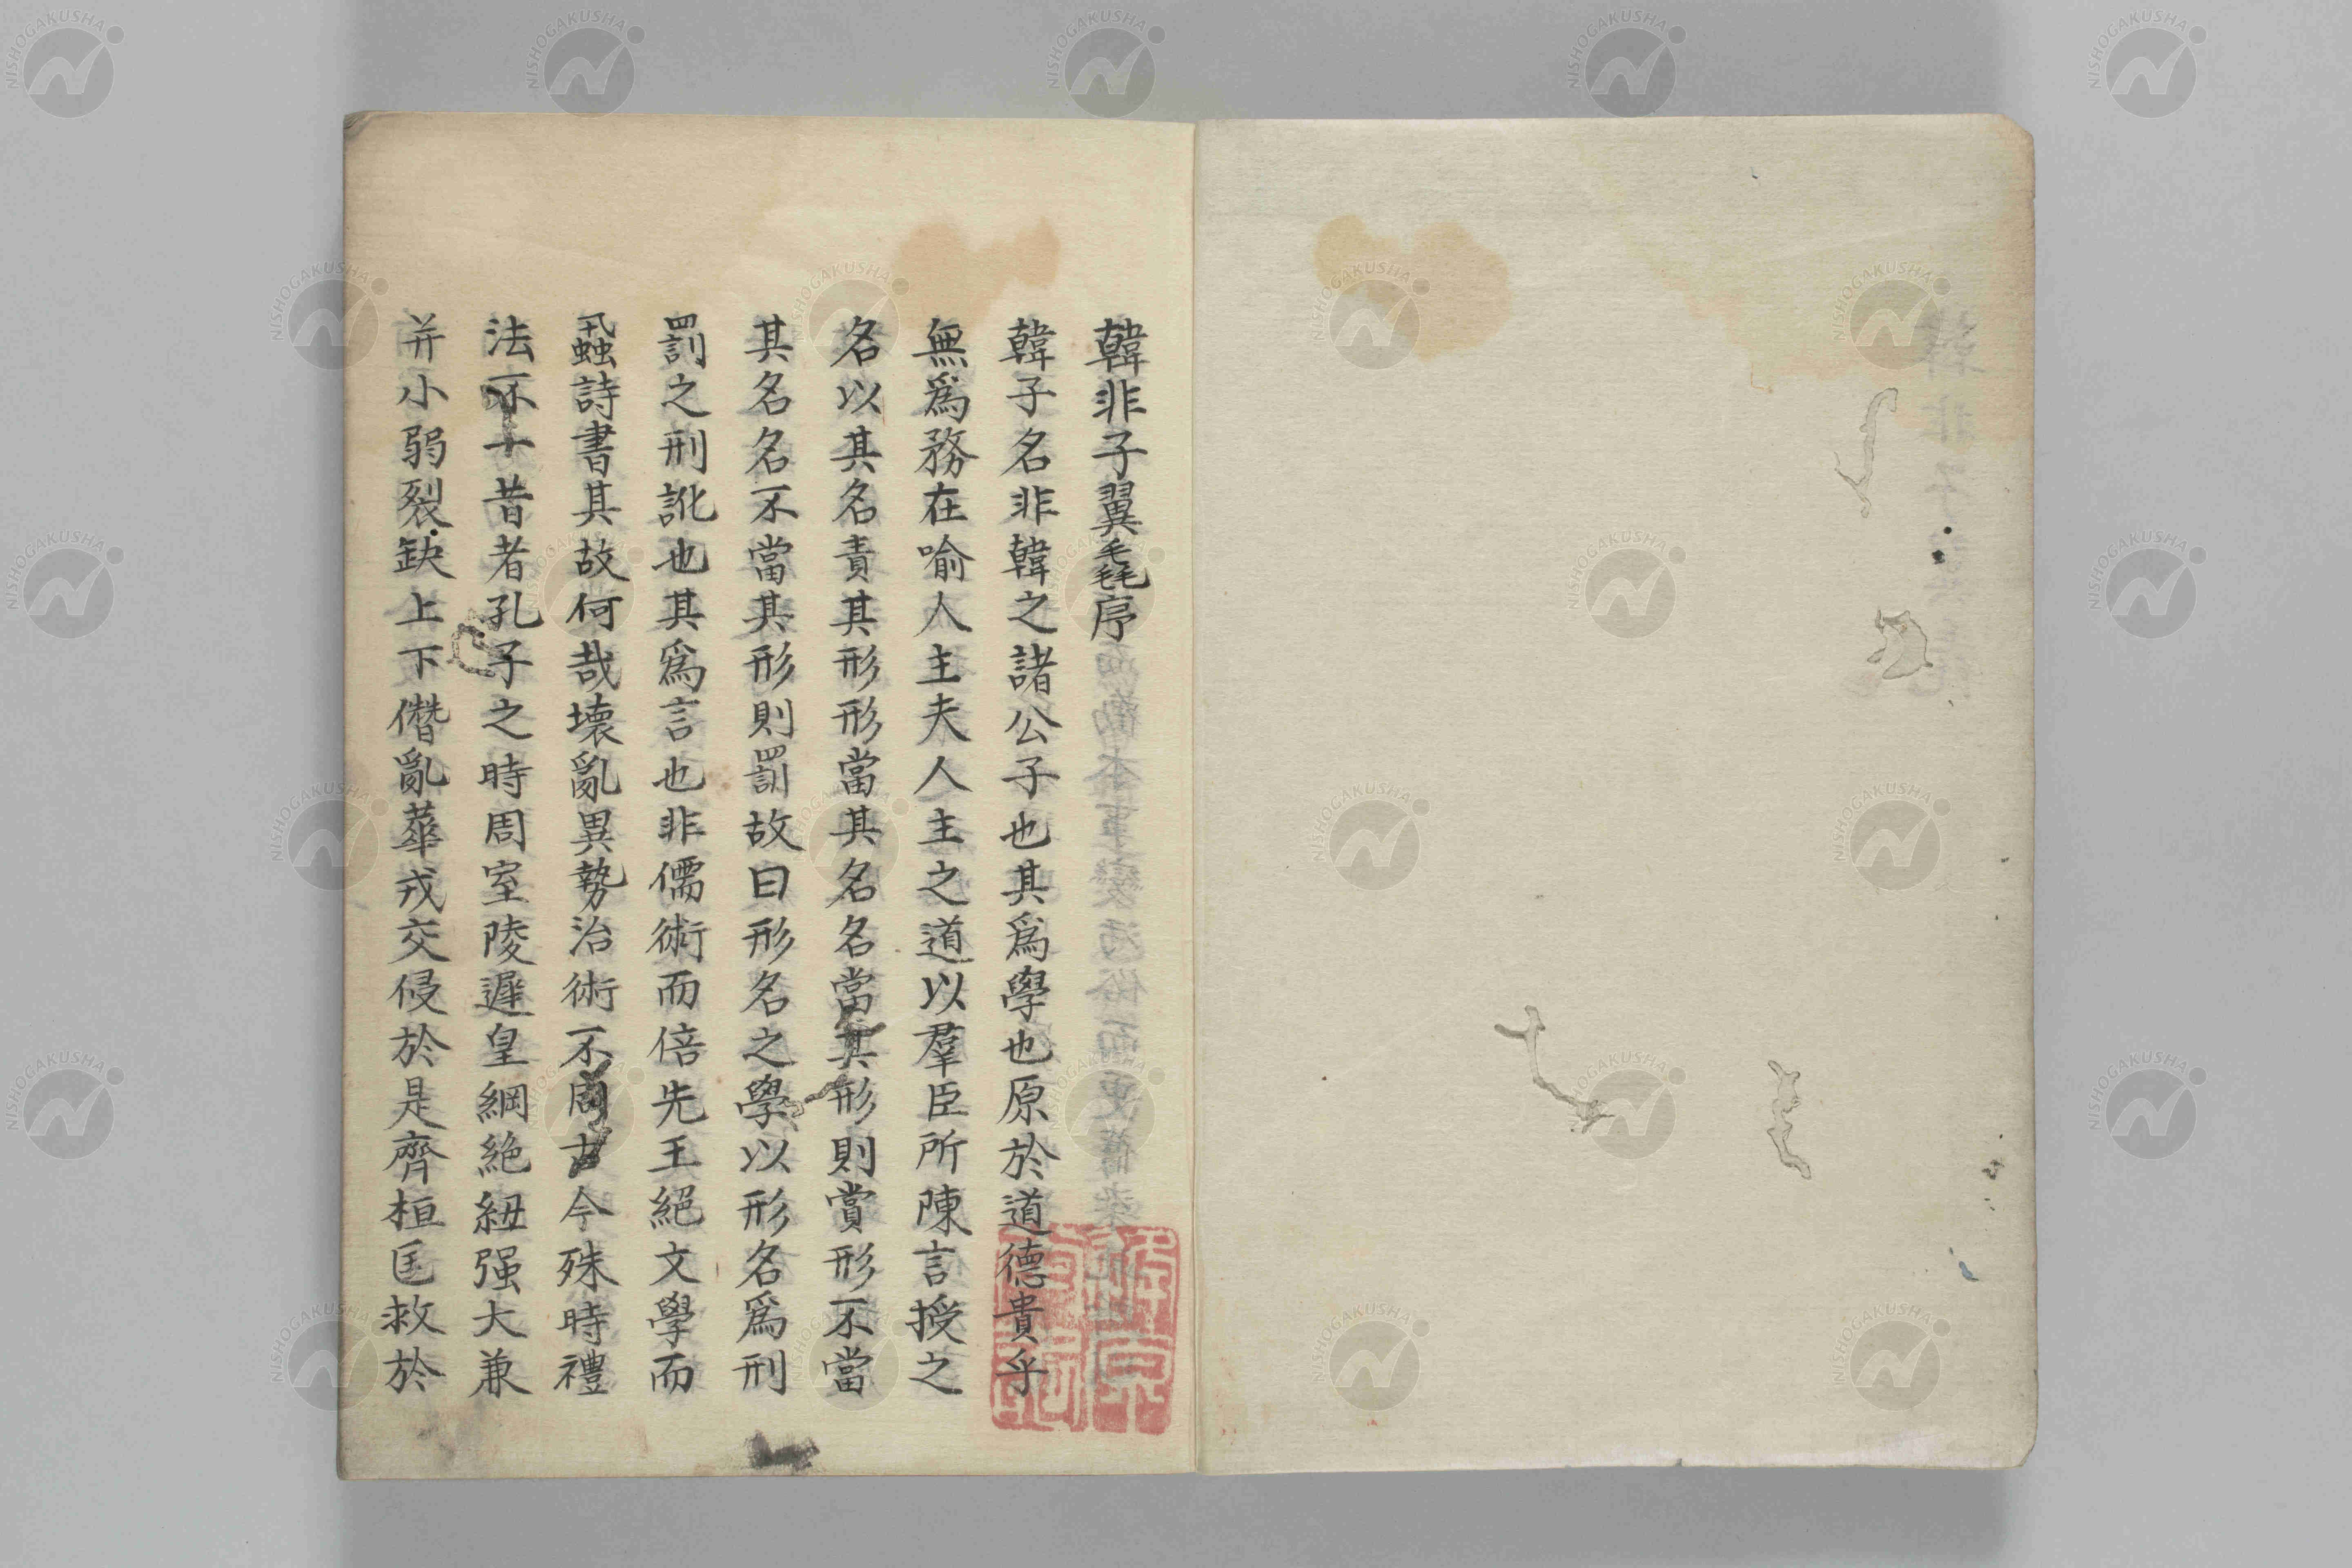 韓非子翼毳序
韓子名非韓之諸公子也其爲學也原於道德貴乎
無爲務在喻人主夫人主之道以羣臣所陳言授之
名以其名責其形形當其名名當其形則賞形不當
其名名不當其形則罰故曰形名之學以形名爲刑
罰之刑訛也其爲言也非儒術而倍先王絕文學而
蝨詩書其故何哉壞亂異勢治術不同古今殊時禮
法不十昔者孔子之時周室陵遲皇綱絶紐强大兼
并小弱裂缺上下僭亂華戎交侵於是齊桓匡救於
NISHOGAKUSHA